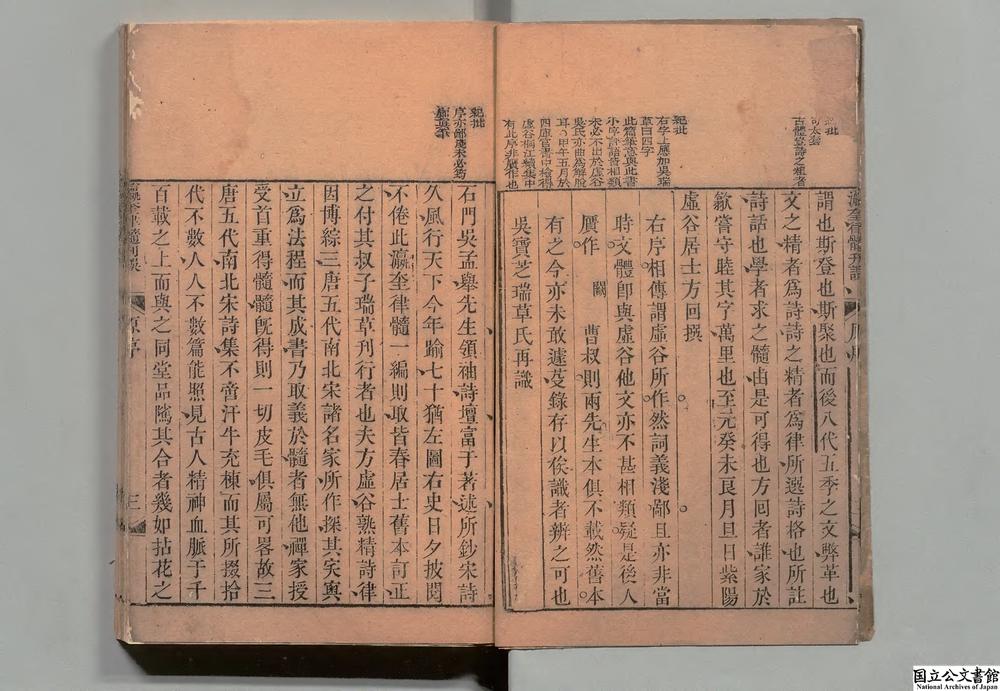 古體登詩之祖者
謂也斯登也斯聚也而後八代五季之文弊革也
文之精者爲詩詩之精者爲律所選詩格也所註
詩話也學者求之髓由是可得也方回者誰家於
歙嘗守睦其字萬里也至元癸未良月旦日紫陽
虛谷居士方回撰
紀批
右字上應加吳瑞
草曰四字
此篇筆意與此書
小字評語皆相類
未必不出於虛谷
吳氏亦曲爲解脫
耳
甲午五月於
四庫官書中檢得
虛谷桐江續集中
有此序非贋作也
右序相傳謂虛谷所作然詞義淺鄙且亦非當
時文體卽與虛谷他文亦不甚相類疑是後人
贋作
曹叔則兩先生本俱不載然舊本
有之今亦未敢遽芟錄存以俟識者辨之可也
吳寶芝瑞草氏再識
紀批
序亦鄙陋未必
石門吳孟舉先生領袖詩壇富于著述所鈔宋詩
久風行天下今年踰七十猶左圖右史日夕披閱
不倦此瀛奎律髓一編則取皆春居士舊本訂正
之付其叔子瑞草刊行者也夫方虛谷熟精詩律
因博綜三唐五代南北宋諸名家所作探其突奧
立爲法程而其成書乃取義於髓者無他禪家授
受首重得髓髓旣得則一切皮毛俱屬可畧故三
唐五代南北宋詩集不啻汗牛充棟而其所掇拾
代不數人人不數篇能照見古人精神血脈于千
百載之上而與之同堂品隲其合者幾如拈花之
三
国立公文書館
National Archives of Japan